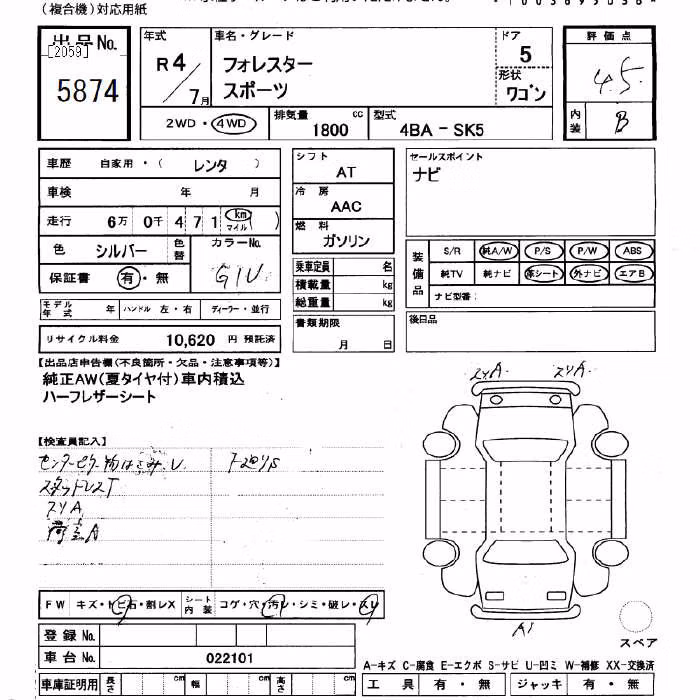 (複合機)対応用紙
出品No.
[2059]
5874
年式
R4/7月
車名・グレード
フォレスター
スポーツ
ドア
5
形状
ワゴン
評価点
4.5
内装
B
2WD・4WD
排気量
1800 cc
型式
4BA - SK5
車歴 自家用・( レンタ )
車検 年 月
走行 6万 0千 4 7 1 km マイル ( )
色 シルバー 色替 カラーNo.
G1U
保証書 有・無
モデル年式 年 ハンドル 左・右 ディーラー・並行
リサイクル料金 10,620 円 預託済
シフト
AT
冷房
AAC
燃料
ガソリン
乗車定員 名
積載量 kg
総重量 kg
書類期限
月 日
セールスポイント
ナビ
装備品
S/R 純A/W P/S P/W ABS
純TV 純ナビ 革シート 外ナビ エアB
ナビ型番:
後日品
【出品店申告欄(不良箇所・欠品・注意事項等)】
純正AW(夏タイヤ付)車内積込
ハーフレザーシート
【検査員記入】
スリA
スリA スリA
A1
FW キズ・トビ石・割レX シート内装 コゲ・穴・汚レ・シミ・破レ・スレ
登録No.
車台No. 022101
車庫証明用 長さ cm 幅 cm 高さ cm
スペア
A-キズ C-腐食 E-エクボ S-サビ U-凹ミ W-補修 XX-交換済
工具 有・無 ジャッキ 有・無